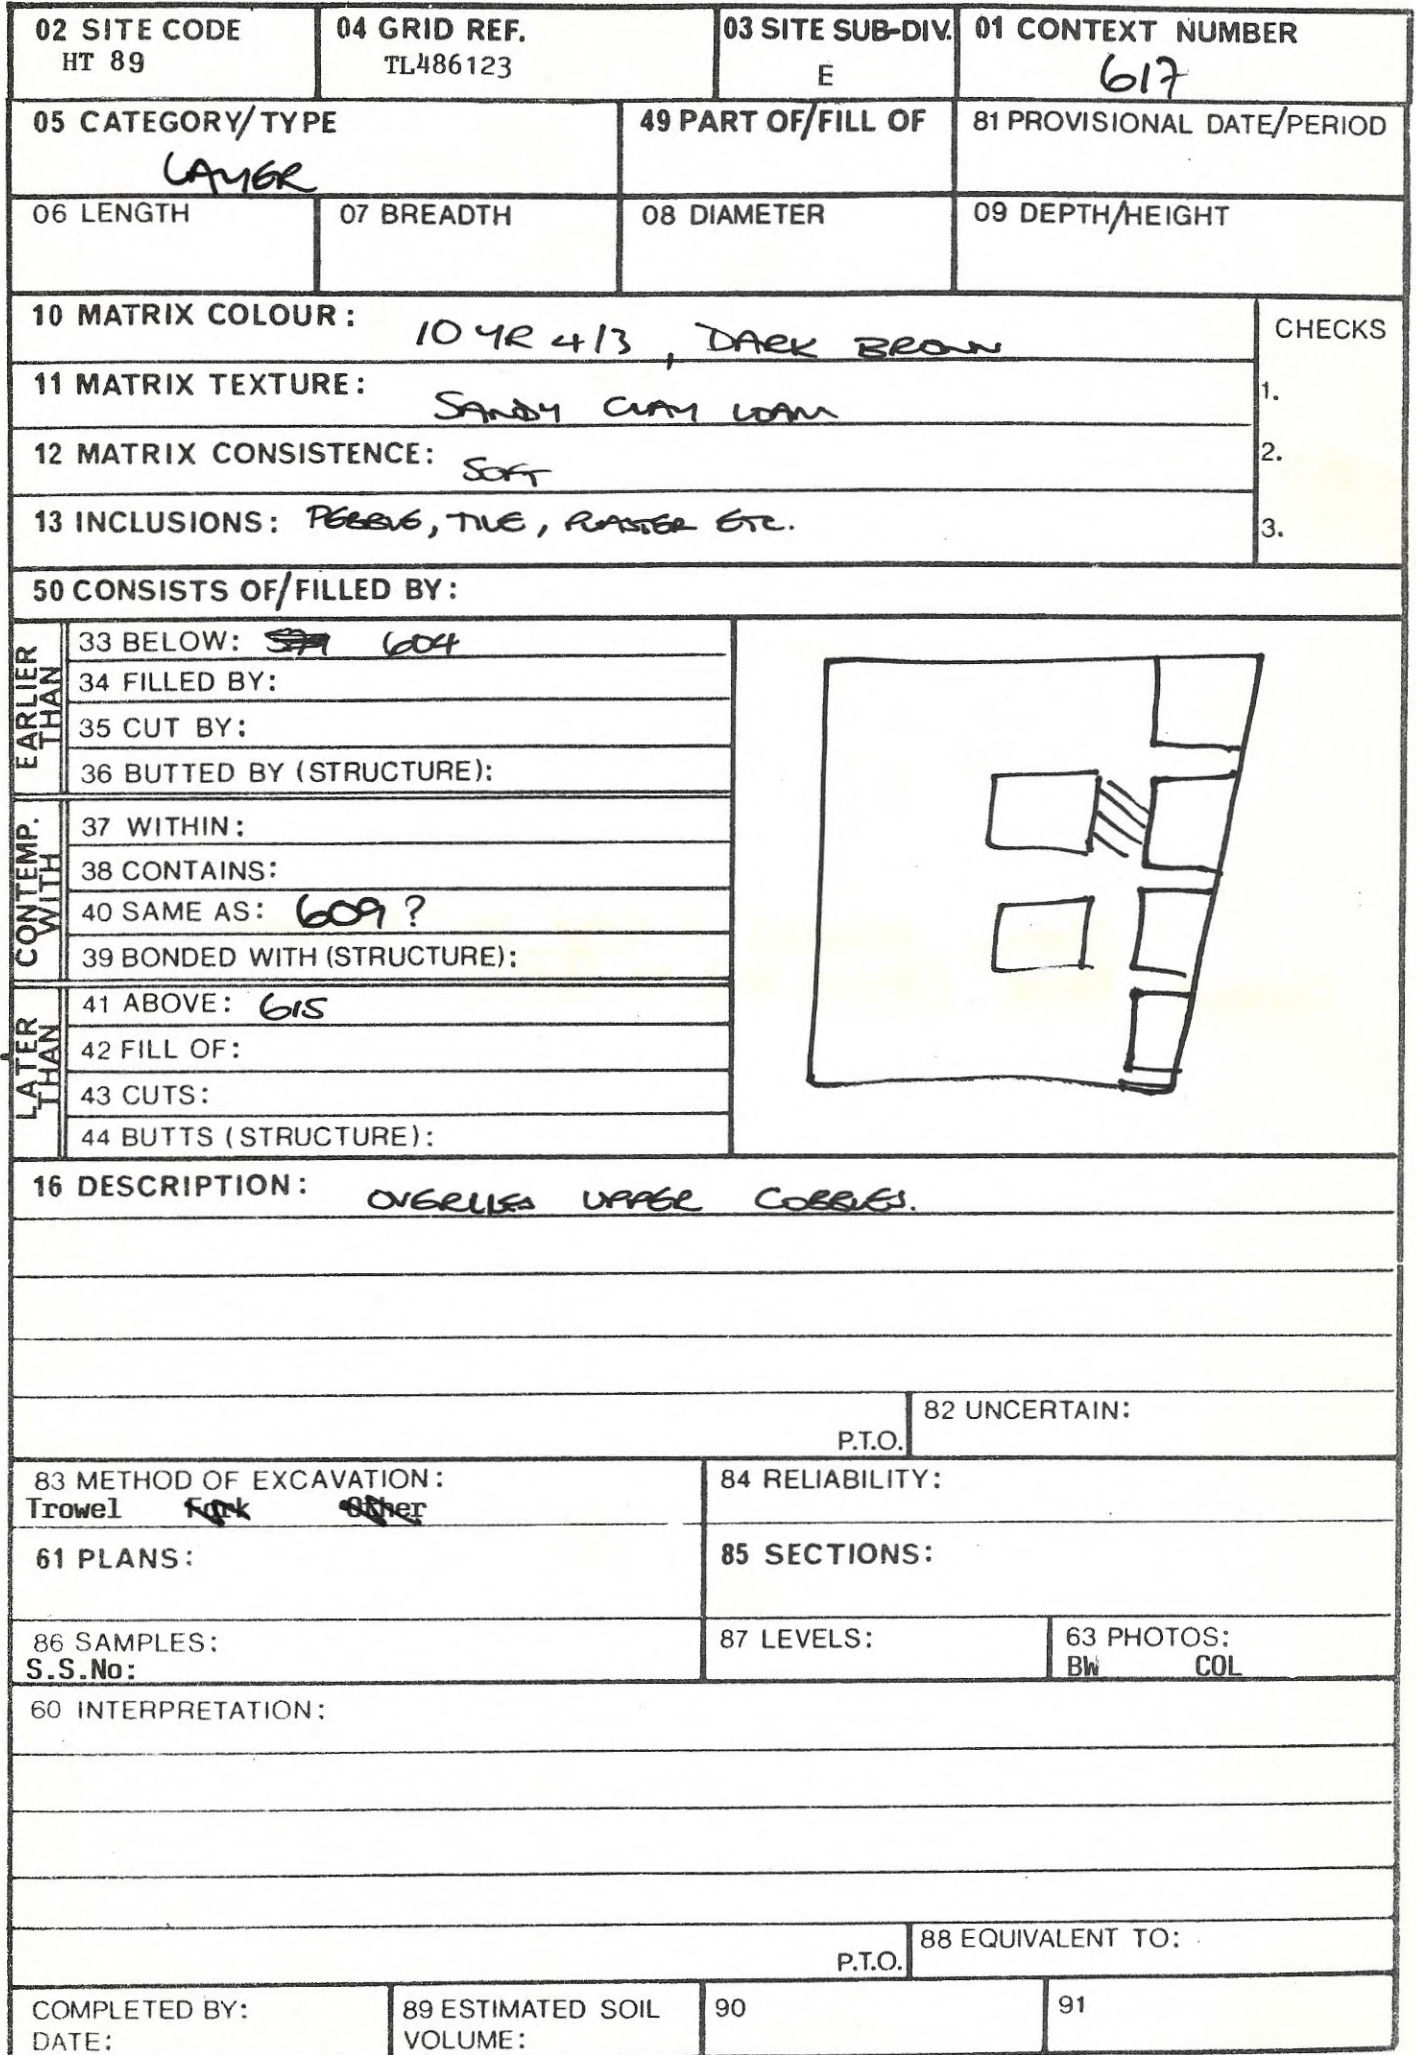 02 SITE CODE
HT 89
04 GRID REF.
TL486123
03 SITE SUB-DIV.
E
01 CONTEXT NUMBER
617
05 CATEGORY/TYPE
LAYER
49 PART OF/FILL OF
81 PROVISIONAL DATE/PERIOD
06 LENGTH
07 BREADTH
08 DIAMETER
09 DEPTH/HEIGHT
10 MATRIX COLOUR: 10 YR 4/3, DARK BROWN
CHECKS
11 MATRIX TEXTURE: SANDY CLAY LOAM
1.
12 MATRIX CONSISTENCE: SOFT
2.
13 INCLUSIONS: PEBBLE, TILE, PLASTER ETC.
3.
50 CONSISTS OF/FILLED BY:
EARLIER THAN
33 BELOW: 604
34 FILLED BY:
35 CUT BY:
36 BUTTED BY (STRUCTURE):
CONTEMP. WITH
37 WITHIN:
38 CONTAINS:
40 SAME AS: 609?
39 BONDED WITH (STRUCTURE):
LATER THAN
41 ABOVE: 615
42 FILL OF:
43 CUTS:
44 BUTTS (STRUCTURE):
16 DESCRIPTION: OVERLIES UPPER COBBLES.
P.T.O.
82 UNCERTAIN:
83 METHOD OF EXCAVATION:
Trowel Fork Other
84 RELIABILITY:
61 PLANS:
85 SECTIONS:
86 SAMPLES:
S.S.No:
87 LEVELS:
63 PHOTOS:
BW COL
60 INTERPRETATION:
P.T.O.
88 EQUIVALENT TO:
COMPLETED BY:
DATE:
89 ESTIMATED SOIL
VOLUME:
90
91